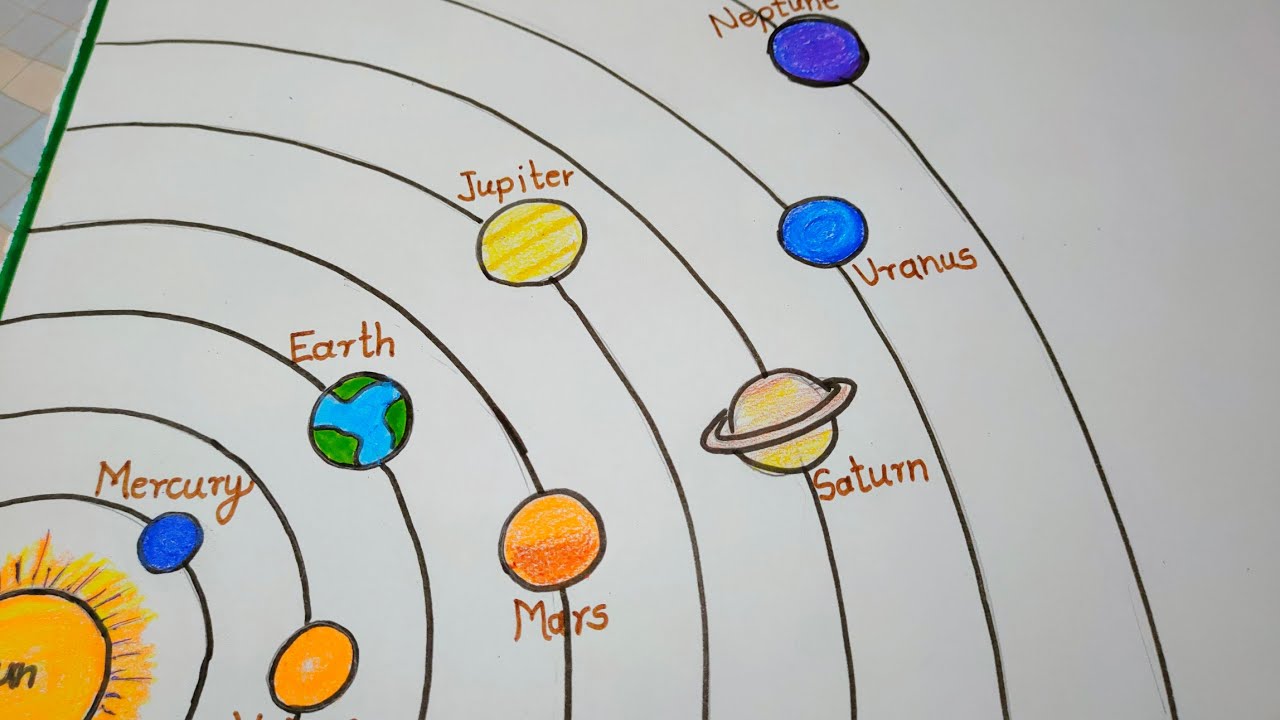 Neptune
Jupiter
Uranus
Earth
Saturn
Mercury
Mars